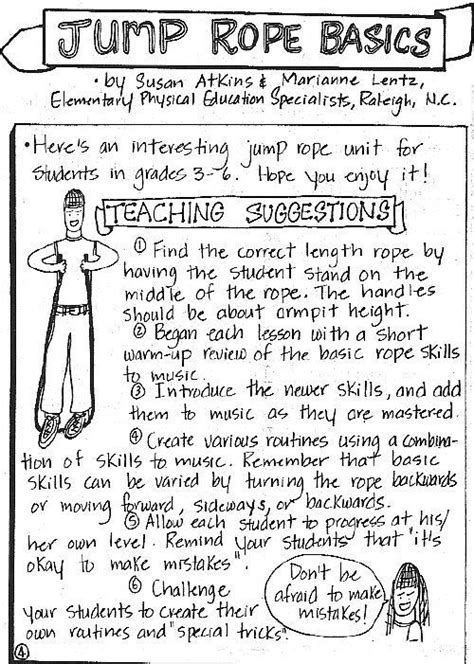 JUMP ROPE BASICS
• by Susan Atkins & Marianne Lentz,
Elementary Physical Education Specialists, Raleigh, N.C.
• Here's an interesting jump rope unit for
students in grades 3-6. Hope you enjoy it!
TEACHING SUGGESTIONS
① Find the correct length rope by
having the student stand on the
middle of the rope. The handles
should be about armpit height.
② Began each lesson with a short
warm-up review of the basic rope skills
to music.
③ Introduce the newer skills, and add
them to music as they are mastered.
④ Create various routines using a combina-
tion of skills to music. Remember that basic
skills can be varied by turning the rope backwards
or moving forward, sideways, or backwards.
⑤ Allow each student to progress at his/
her own level. Remind your students that "it's
okay to make mistakes".
⑥ Challenge
your students to create their
own routines and "special tricks".
Don't be
afraid to make
mistakes!
④